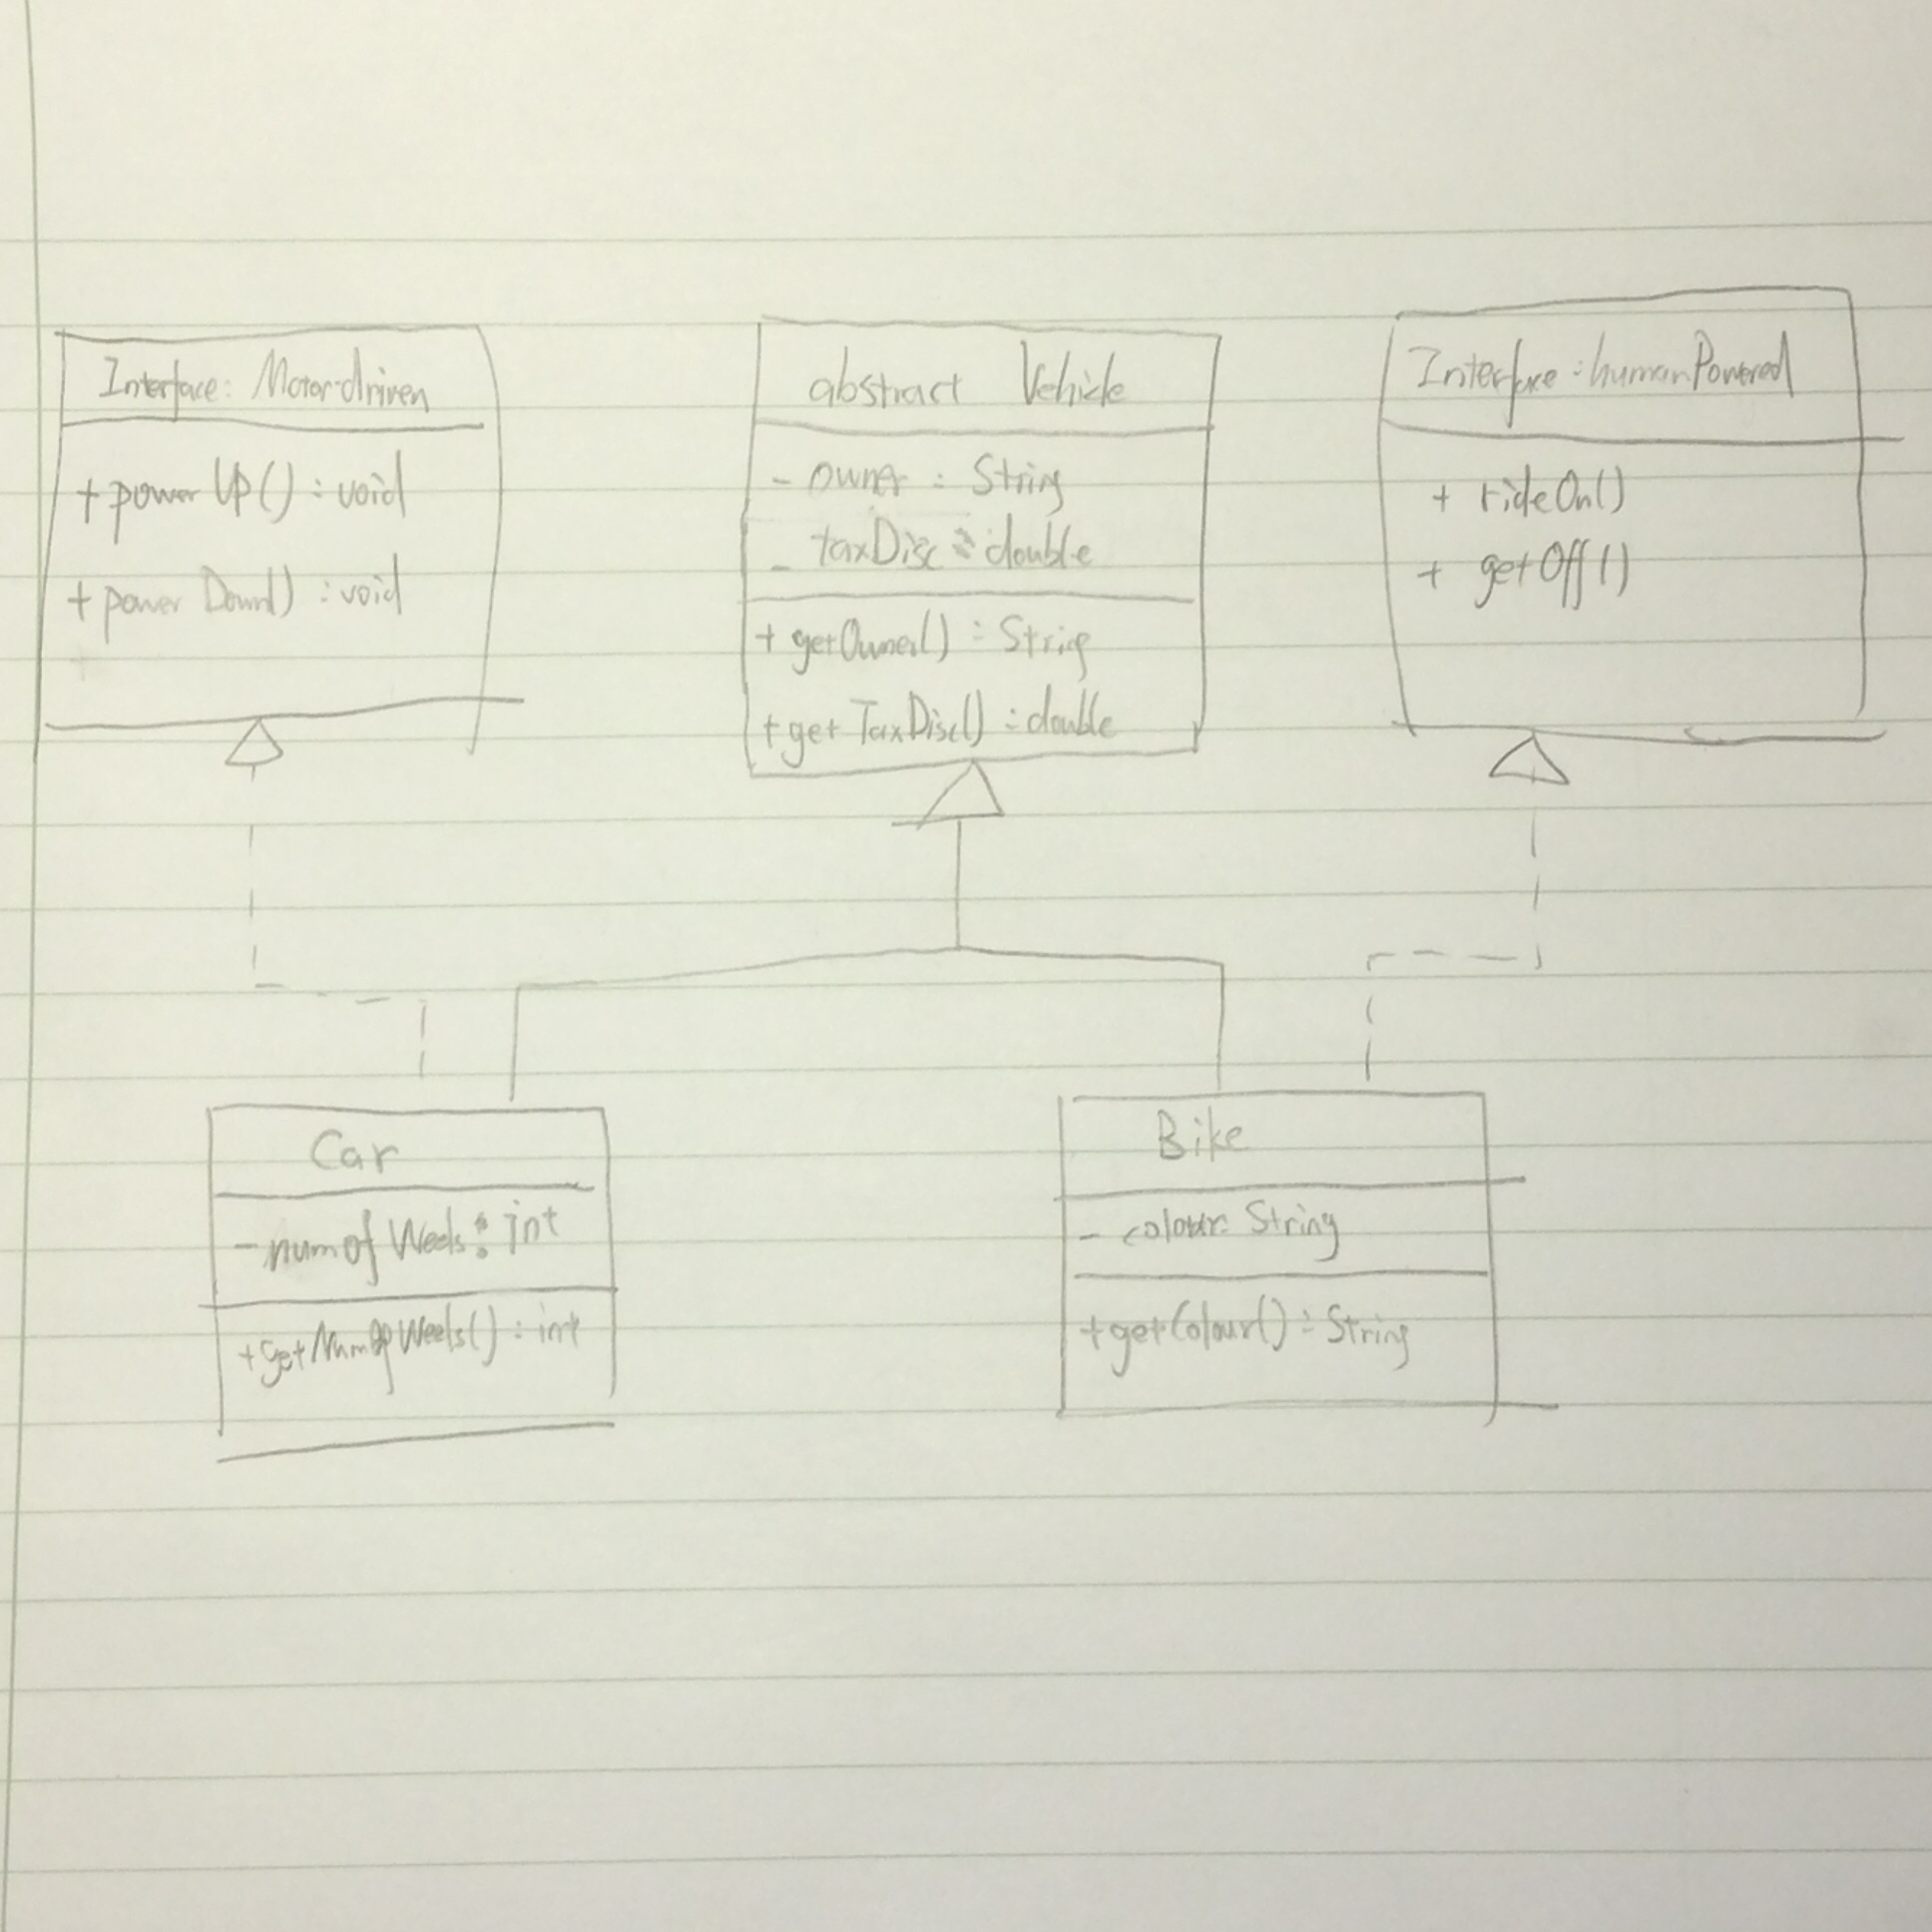 Interface: Motor-driven
+ power Up() : void
+ power Down() : void
abstract Vehicle
- owner : String
- taxDisc : double
+ getOwner() : String
+ get TaxDisc() : double
Interface : humanPowered
+ rideOn()
+ getOff()
Car
- num of Weels : int
+ getNumOfWeels() : int
Bike
- colour: String
+ getColour() : String